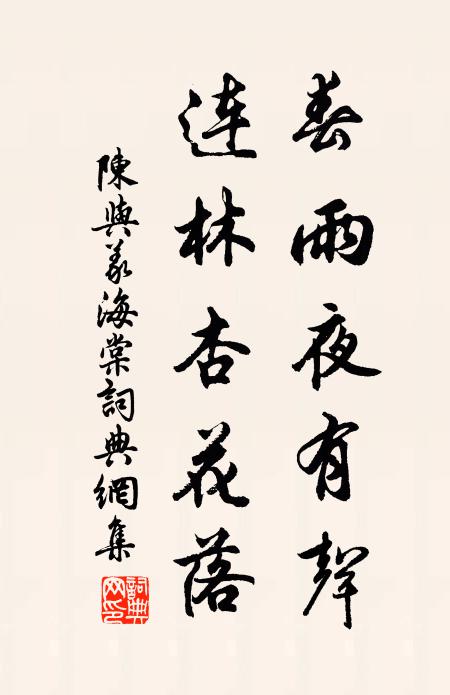 春雨夜有聲
連林杏花落
陳與義海棠詞典網集
詞典网印